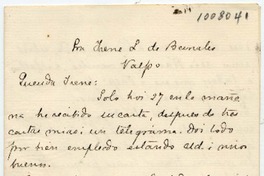 1008041
Sra Irene L. de Banales
Valpo
Querida Irene:
Solo hoi 27 en la maña
na he recibido su carta, despues de tres
cartas mias i un telegrama. Doi todo
por bien empleado estando Ud. i niños
buenos.